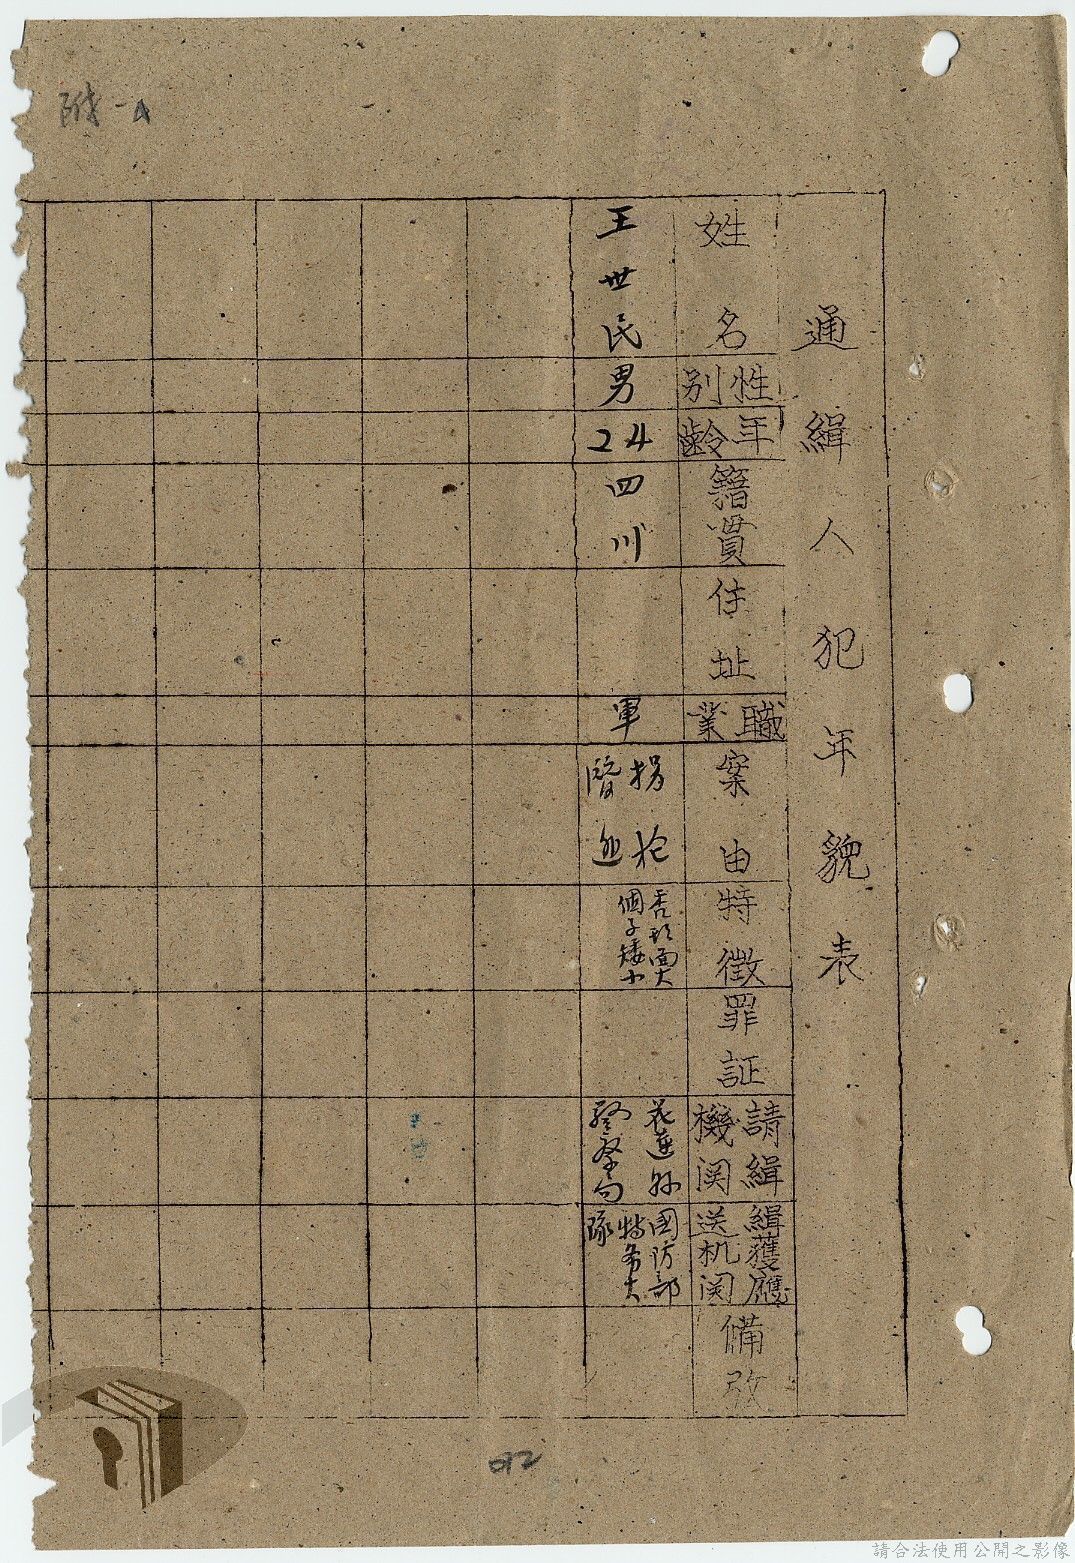 附一
通緝人犯年貌表
姓名
性別
年齡
籍貫
住址
職業
案由
特徵
罪証
請緝機関
緝獲應送机関
備攷
王世民
男
24
四川
軍
拐枪
潛逃
面大
個子矮小
花蓮縣
警察局
國防部
特务大
隊
92
請合法使用公開之影像